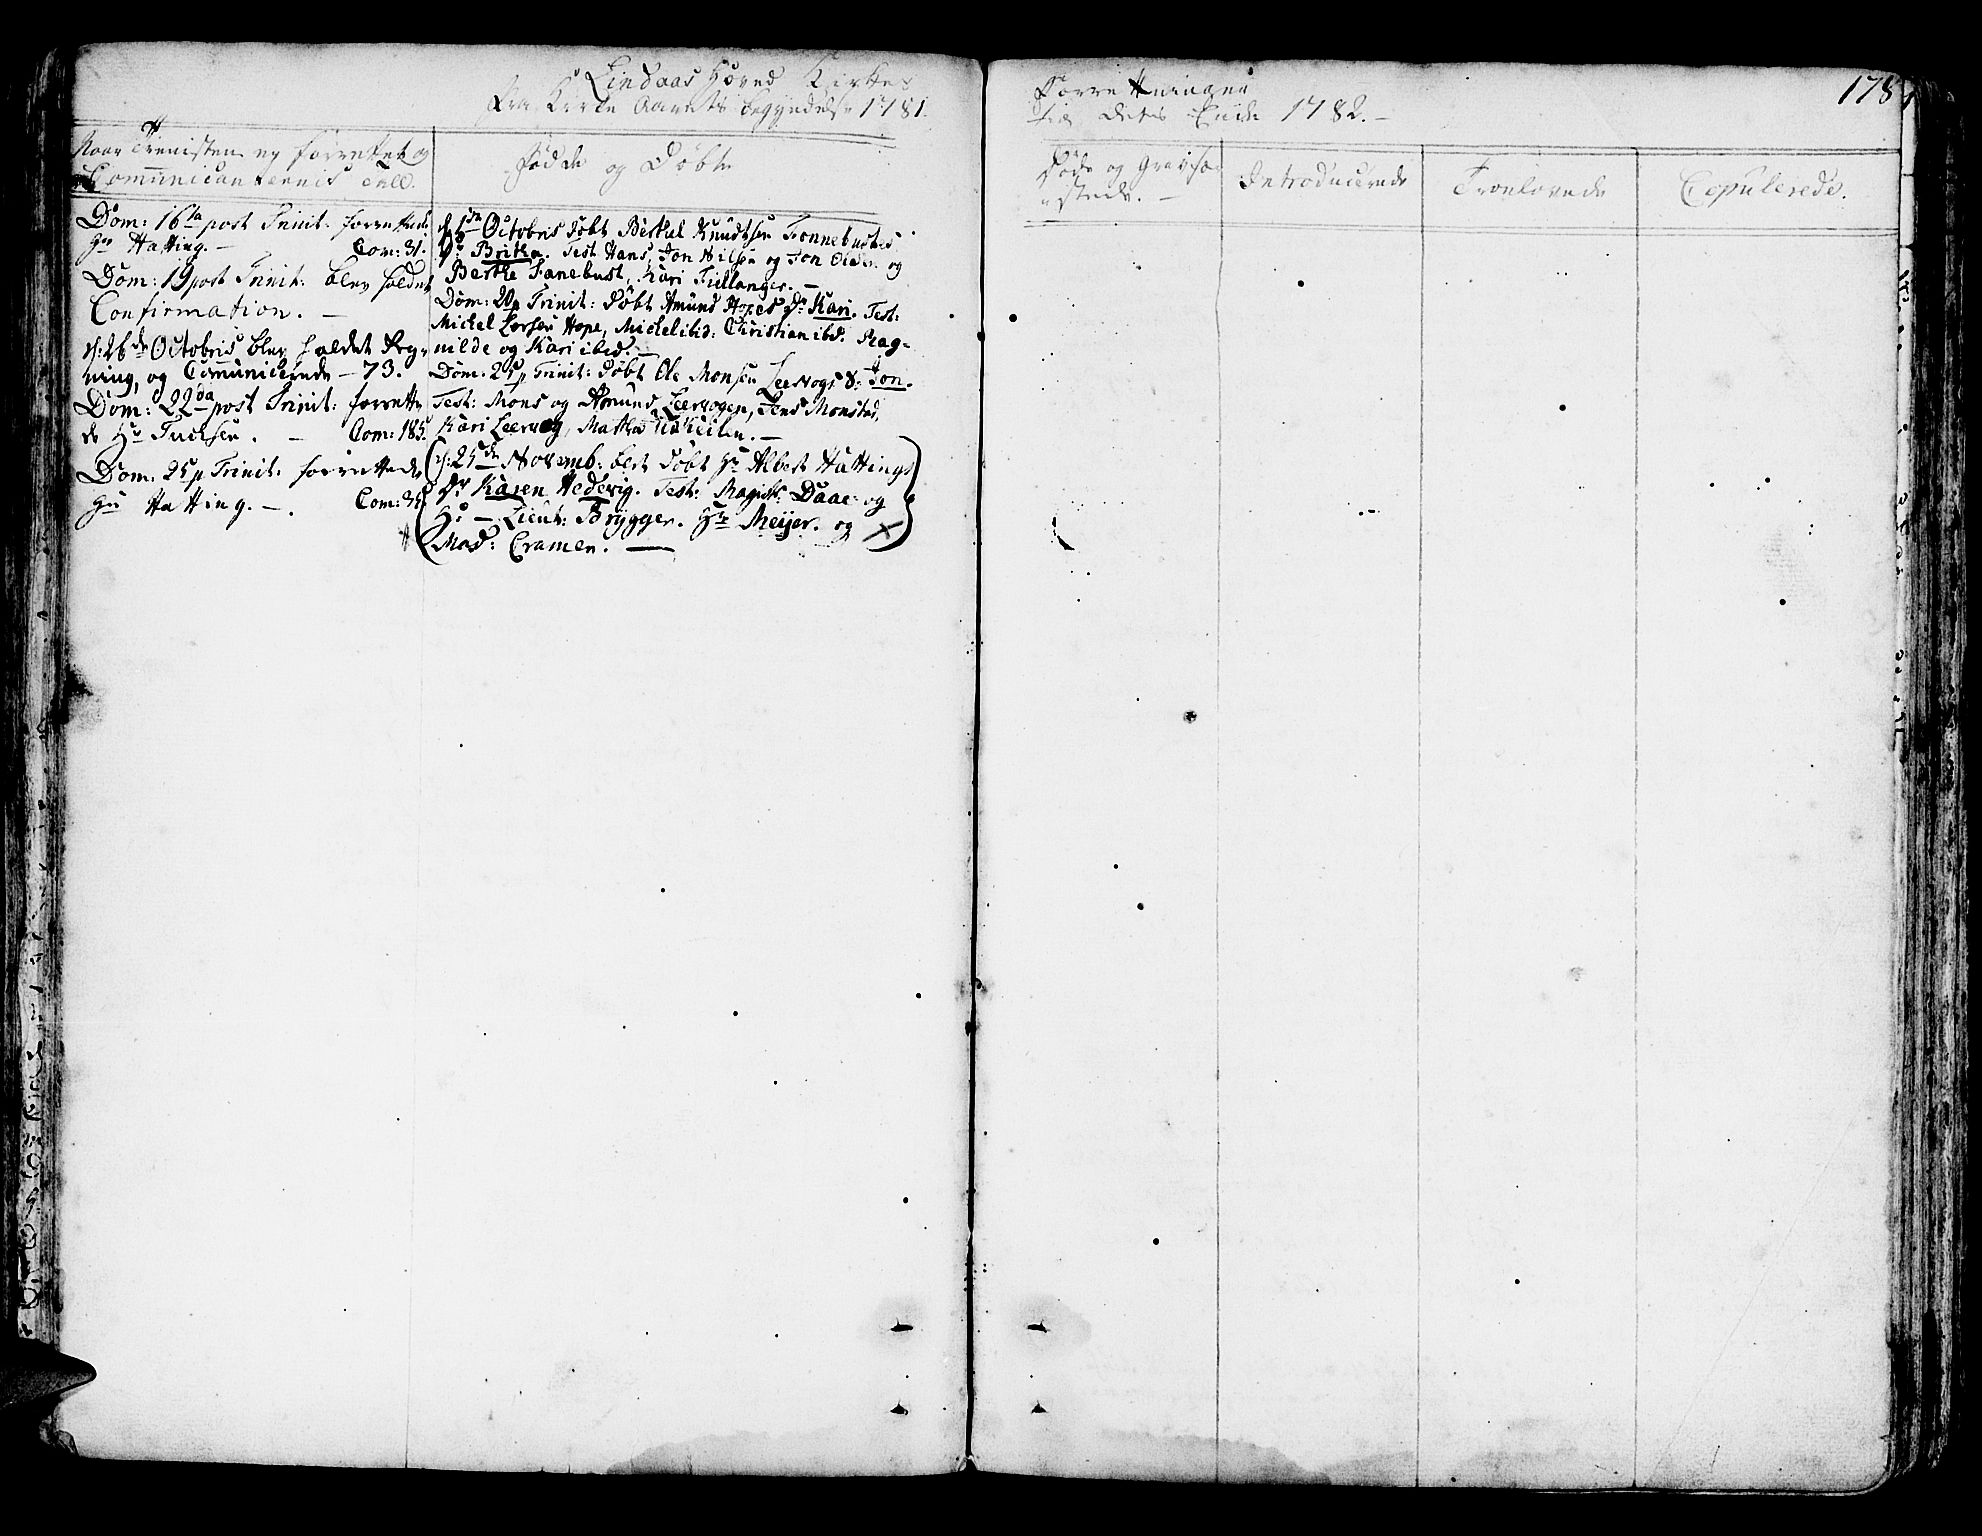 Lindaas Hoved Kirkes
Fra Kirke Aarets begyndelse 1781.
Forretninger
til dets Ende 1782.-
178
Naar Tienisten er forrettet og
Communicanternis tall.
Fødde og Døbte
Døde og Gravfæ-
stede. -
Introducerede
Troelovede
Copulerede.
Dom: 16ta post Trinit: forrettede
Hr Hatting. - Com: 31.
Dom: 19 post Trinit: blev holdet
Confirmation. -
d: 26de Octobris blev holdet
ning, og Communicerede - 73.
Dom: 22da post Trinit: forrette
de Hr - Com: 185.
Dom: 25 p Trinit: forrettede
Hr Hatting. -. Com: 35
d: 1de Octobris døbt Berthel Knudtsen Fonnebusts
Dr Britha. Test Hans, Jon Nilsen og Jon Olsen og
Berthe Fanebust, Kari Fieldanger. -
Dom: 20 p Trinit: døbt Amund Hopes Dr Kari. Test:
Mickel Larsen Hope, Mickel ibid: Christian ibd. Rag-
nilde og Kari ibid. -
Dom: 25 p Trinit: døbt Ole Monsen Leervogs S: Jon.
Test: Mons og Amund Leervogen, Jens Monstad,
Kari Leervog, Martha -
d: 25de Novemb: blev døbt Hr Albert Hattings
Dr Karen Hedevig. Test: Magist: Daae og
Hr - Lieut: Brygger. Hr Meijer. og
Mad: Cramer. -